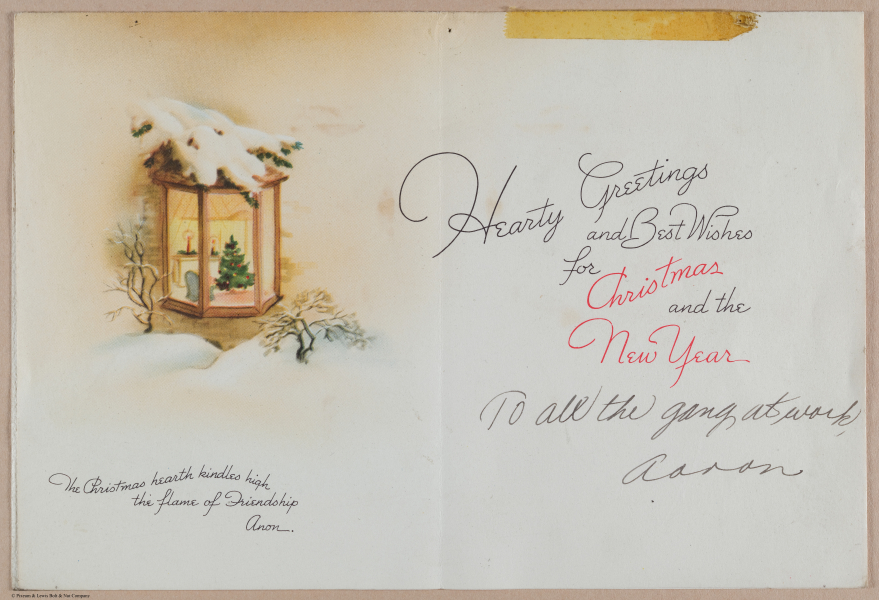 The Christmas hearth kindles high
the flame of Friendship
Anon.
Hearty Greetings
and Best Wishes
for Christmas
and the
New Year
To all the gang at work,
Aaron